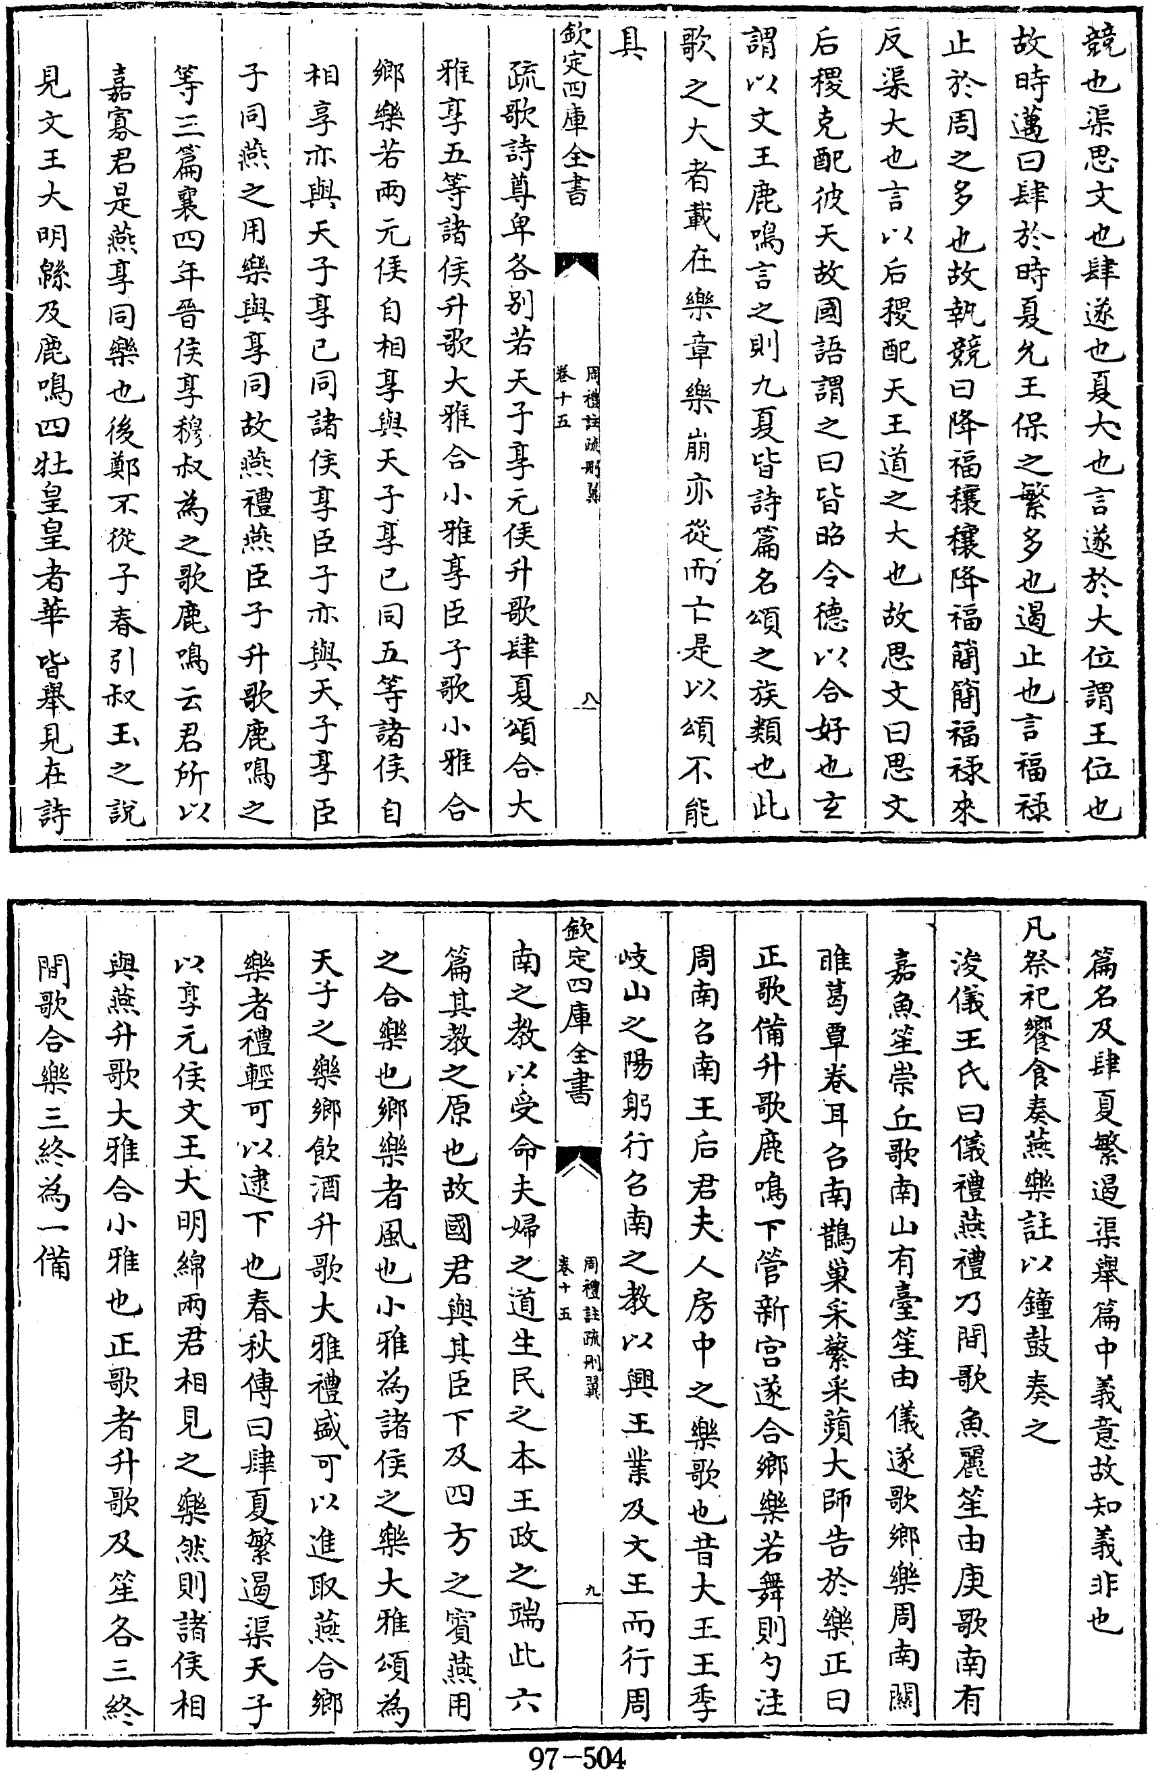 競也渠思文也肆遂也夏大也言遂於大位謂王位也
故時邁曰肆於時夏允王保之繁多也遏止也言福祿
止於周之多也故執競曰降福穰穰降福簡簡福祿來
反渠大也言以后稷配天王道之大也故思文曰思文
后稷克配彼天故國語謂之曰皆昭令德以合好也玄
謂以文王鹿鳴言之則九夏皆詩篇名頌之族類也此
歌之大者載在樂章樂崩亦從而亡是以頌不能
具
欽定四庫全書
周禮註疏刪翼
卷十五
八
疏歌詩尊卑各別若天子享元侯升歌肆夏頌合大
雅享五等諸侯升歌大雅合小雅享臣子歌小雅合
鄉樂若兩元侯自相享與天子享已同五等諸侯自
相享亦與天子享已同諸侯享臣子亦與天子享臣
子同燕之用樂與享同故燕禮燕臣子升歌鹿鳴之
等三篇襄四年晉侯享穆叔為之歌鹿鳴云君所以
嘉寡君是燕享同樂也後鄭不從子春引叔玉之說
見文王大明緜及鹿鳴四牡皇皇者華皆舉見在詩
篇名及肆夏繁遏渠舉篇中義意故知義非也
凡祭祀饗食奏燕樂註以鐘鼓奏之
浚儀王氏曰儀禮燕禮乃間歌魚麗笙由庚歌南有
嘉魚笙崇丘歌南山有臺笙由儀遂歌鄉樂周南關
雎葛覃卷耳召南鵲巢采蘩采蘋大師告於樂正曰
正歌備升歌鹿鳴下管新宫遂合鄉樂若舞則勺注
周南召南王后君夫人房中之樂歌也昔大王王季
岐山之陽躬行召南之教以興王業及文王而行周
欽定四庫全書
周禮註疏刪翼
卷十五
九
南之教以受命夫婦之道生民之本王政之端此六
篇其教之原也故國君與其臣下及四方之賓燕用
之合樂也鄉樂者風也小雅為諸侯之樂大雅頌為
天子之樂鄉飲酒升歌大雅禮盛可以進取燕合鄉
樂者禮輕可以逮下也春秋傳曰肆夏繁遏渠天子
以享元侯文王大明綿兩君相見之樂然則諸侯相
與燕升歌大雅合小雅也正歌者升歌及笙各三終
間歌合樂三終為一備
97-504